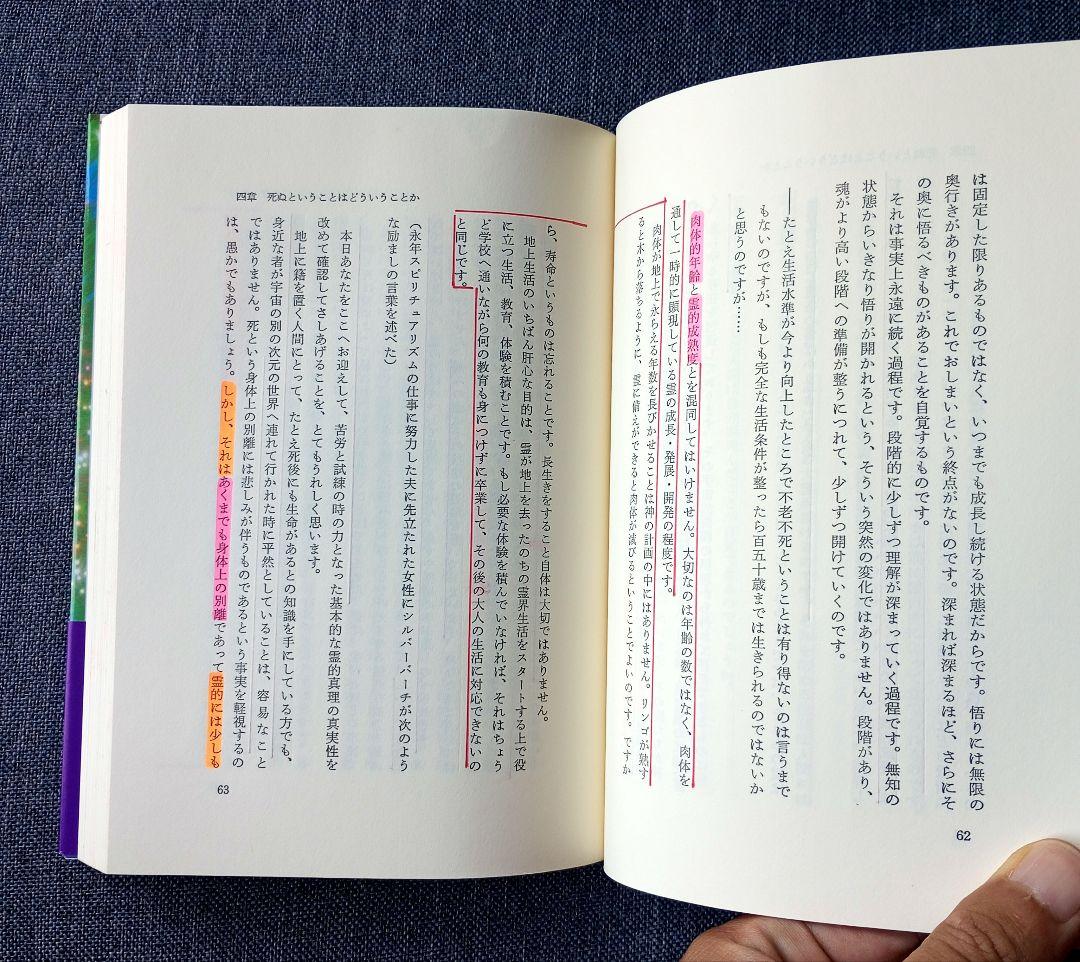 は固定した限りあるものではなく、いつまでも成長し続ける状態だからです。悟りには無限の
奥行きがあります。これでおしまいという終点がないのです。深まれば深まるほど、さらにそ
の奥に悟るべきものがあることを自覚するものです。
それは事実上永遠に続く過程です。段階的に少しずつ理解が深まっていく過程です。無知の
状態からいきなり悟りが開かれるという、そういう突然の変化ではありません。段階があり、
魂がより高い段階への準備が整うにつれて、少しずつ開けていくのです。
――たとえ生活水準が今より向上したところで不老不死ということは有り得ないのは言うまで
もないのですが、もしも完全な生活条件が整ったら百五十歳までは生きられるのではないか
と思うのですが……
肉体的年齢と霊的成熟度とを混同してはいけません。大切なのは年齢の数ではなく、肉体を
通して一時的に顕現している霊の成長・発展・開発の程度です。
肉体が地上で永らえる年数を長びかせることは神の計画の中にはありません。リンゴが熟す
ると木から落ちるように、霊に備えができると肉体が滅びるということでよいのです。ですか
62
四章 死ぬということはどういうことか
ら、寿命というものは忘れることです。長生きをすること自体は大切ではありません。
地上生活のいちばん肝心な目的は、霊が地上を去ったのちの霊界生活をスタートする上で役
に立つ生活、教育、体験を積むことです。もし必要な体験を積んでいなければ、それはちょう
ど学校へ通いながら何の教育も身につけずに卒業して、その後の大人の生活に対応できないの
と同じです。
(永年スピリチュアリズムの仕事に努力した夫に先立たれた女性にシルバーバーチが次のよう
な励ましの言葉を述べた)
本日あなたをここへお迎えして、苦労と試練の時の力となった基本的な霊的真理の真実性を
改めて確認してさしあげることを、とてもうれしく思います。
地上に籍を置く人間にとって、たとえ死後にも生命があるとの知識を手にしている方でも、
身近な者が宇宙の別の次元の世界へ連れて行かれた時に平然としていることは、容易なこと
ではありません。死という身体上の別離には悲しみが伴うものであるという事実を軽視するの
は、愚かでもありましょう。しかし、それはあくまでも身体上の別離であって霊的には少しも
63